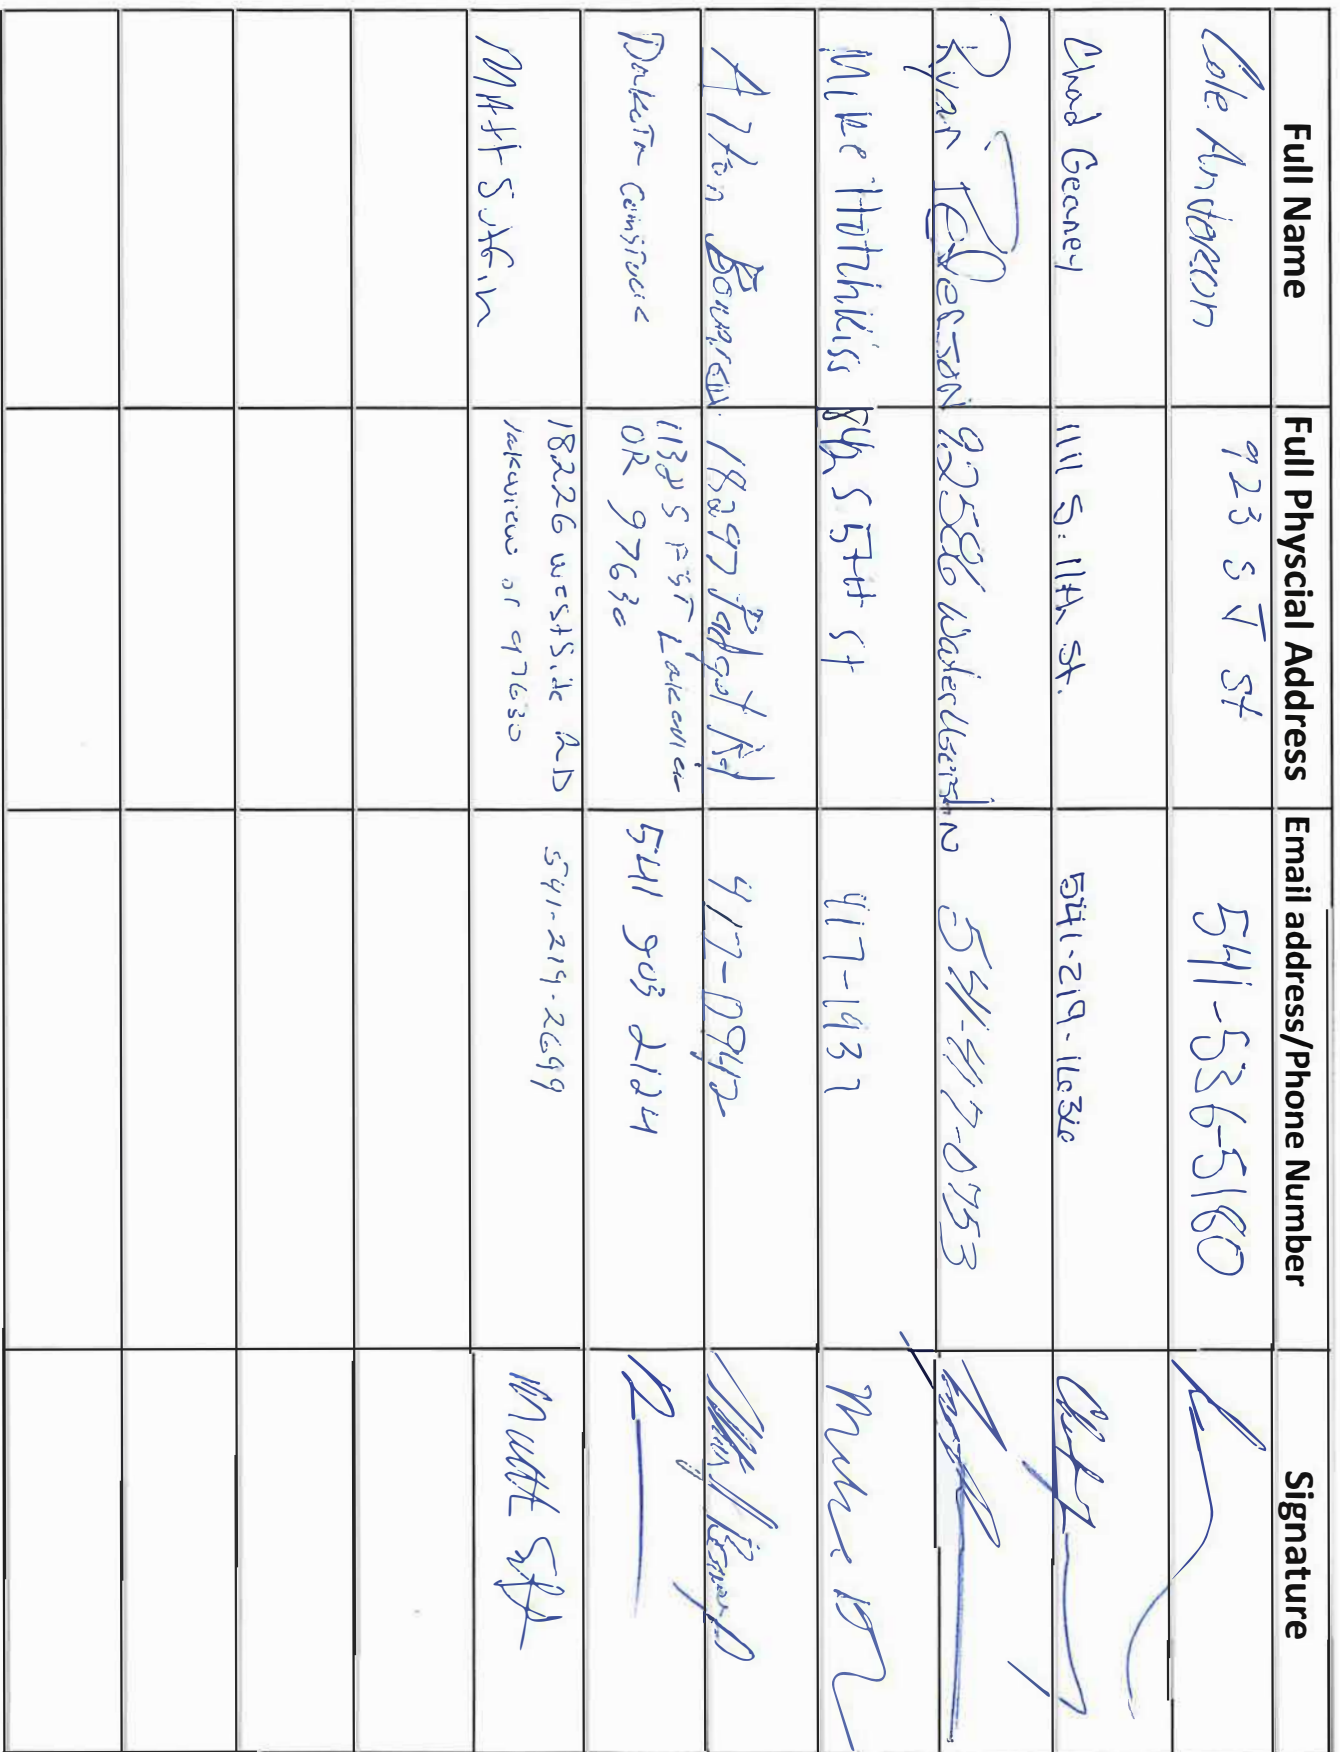 Full Name Full Physcial Address Email address/Phone Number Signature
Cole Anderson 923 S J St 541-536-5160
Chad Geaney 1111 S. 11th St. 541-219-1636
Ryan Pederson 92586 Waterusers LN 541-417-0753
Mike Hotchkiss S 5TH St 417-1937
18297 Rd 417-0942
Dakota Comstock 1138 S F ST Lakeview
OR 97630 541 903 2124
Matt 18226 westside RD
lakeview or 97630 541-219-2699